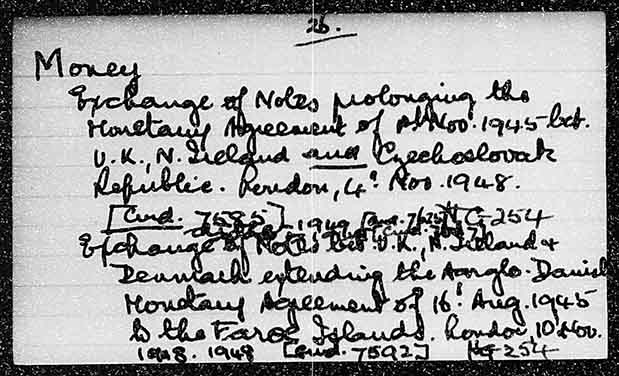 26.
Money
Exchange of Notes prolonging the
Monetary Agreement of 1st Nov. 1945 bet.
U.K., N. Ireland and Czechoslovak
Republic. London, 4. Nov. 1948.
[Cmd. 7585] 1949 NC-254
Exchange of Notes bet. U.K., N. Ireland &
Denmark extending the Anglo-Danish
Monetary Agreement of 16. Aug. 1945
to the Faroe Islands. London 10 Nov.
1948. 1948 [Cmd. 7592] NC-254